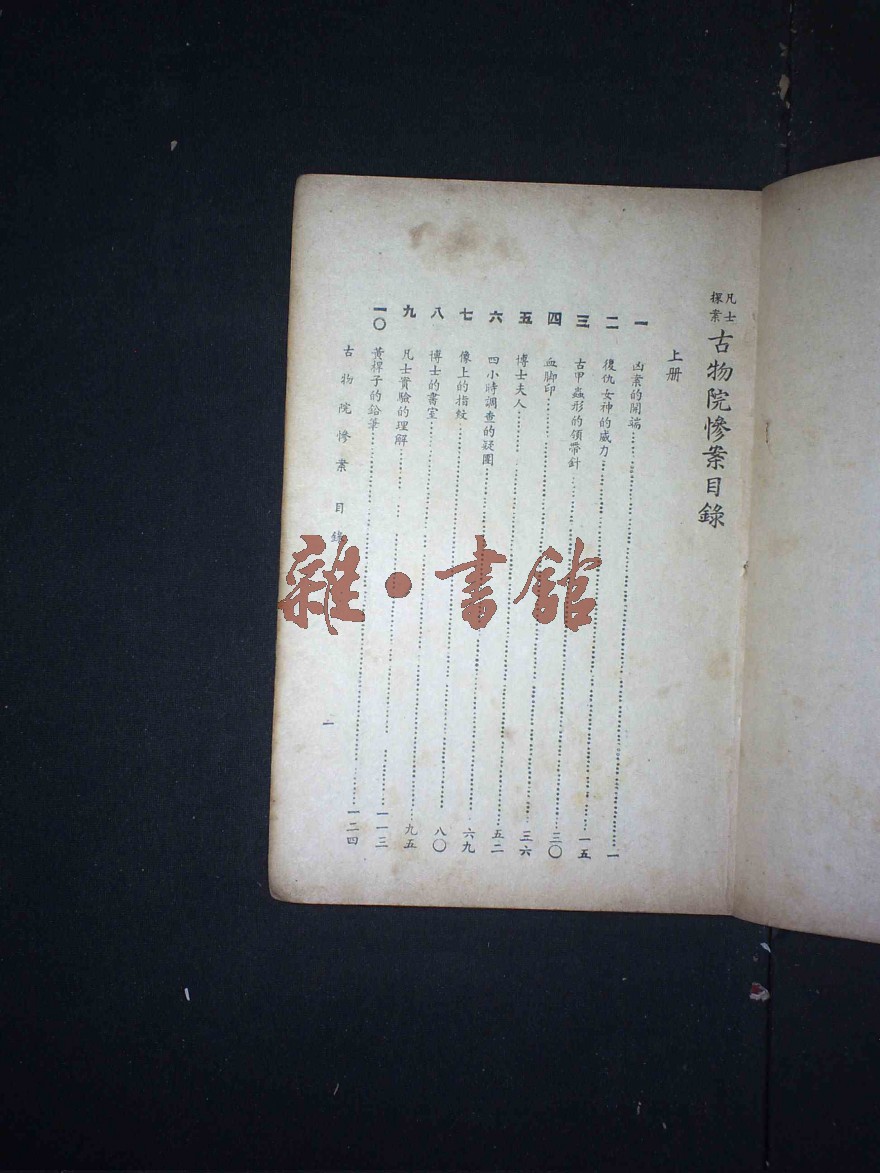 凡士探案 古物院慘案目錄
上册
一 凶案的開端……一
二 復仇女神的威力……一五
三 古甲蟲形的領帶針……三〇
四 血脚印……三六
五 博士夫人……五二
六 四小時調查的疑團……六九
七 像上的指紋……八〇
八 博士的書室……九五
九 凡士實驗的理解……一一三
一〇 黃桿子的鉛筆……一二四
古物院慘案 目錄
一
雜·書館